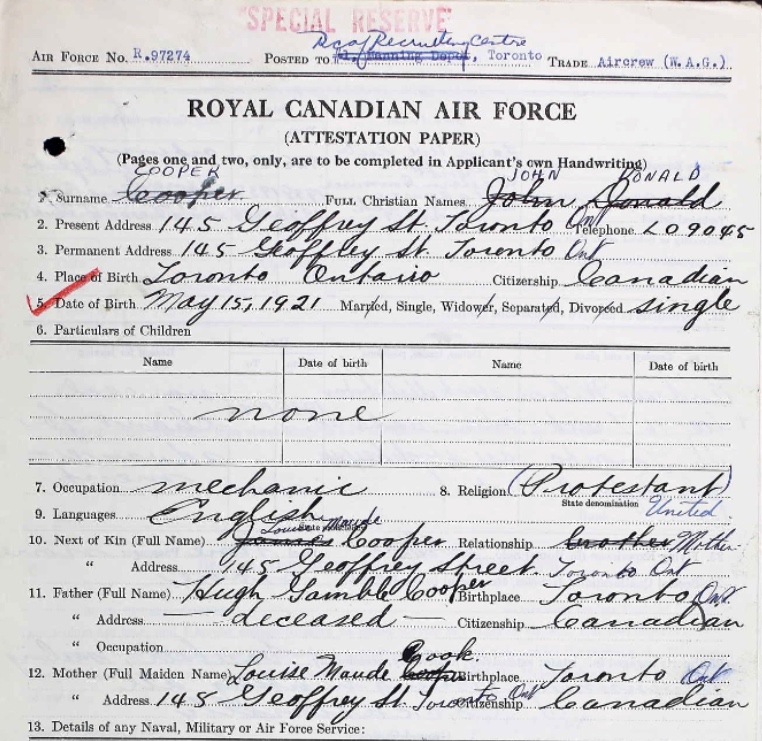 "SPECIAL RESERVE"
Rcaf Recruiting Centre
AIR FORCE NO. R.97274 POSTED TO Manning Depot, Toronto TRADE Aircrew (W.A.G.)
ROYAL CANADIAN AIR FORCE
(ATTESTATION PAPER)
(Pages one and two, only, are to be completed in Applicant's own Handwriting)
COOPER JOHN DONALD
1. Surname Cooper FULL Christian Names John Donald
2. Present Address 145 Geoffrey St. Toronto Ont Telephone LO9045
3. Permanent Address 145 Geoffrey St. Toronto Ont
4. Place of Birth Toronto Ontario Citizenship Canadian
5. Date of Birth May 15, 1921 Married, Single, Widower, Separated, Divorced single
6. Particulars of Children
Name Date of birth Name Date of birth
none
7. Occupation mechanic 8. Religion (Protestant)
State denomination United
9. Languages English
Louise Maude
10. Next of Kin (Full Name) James Cooper Relationship brother Mother
" Address 145 Geoffrey Street. Toronto Ont
11. Father (Full Name) Hugh Gamble Cooper Birthplace Toronto Ont.
" Address — deceased — Citizenship Canadian
" Occupation
Cook.
12. Mother (Full Maiden Name) Louise Maude Cooper Birthplace Toronto Ont
" Address 145 Geoffrey St Toronto Ont Citizenship Canadian
13. Details of any Naval, Military or Air Force Service: